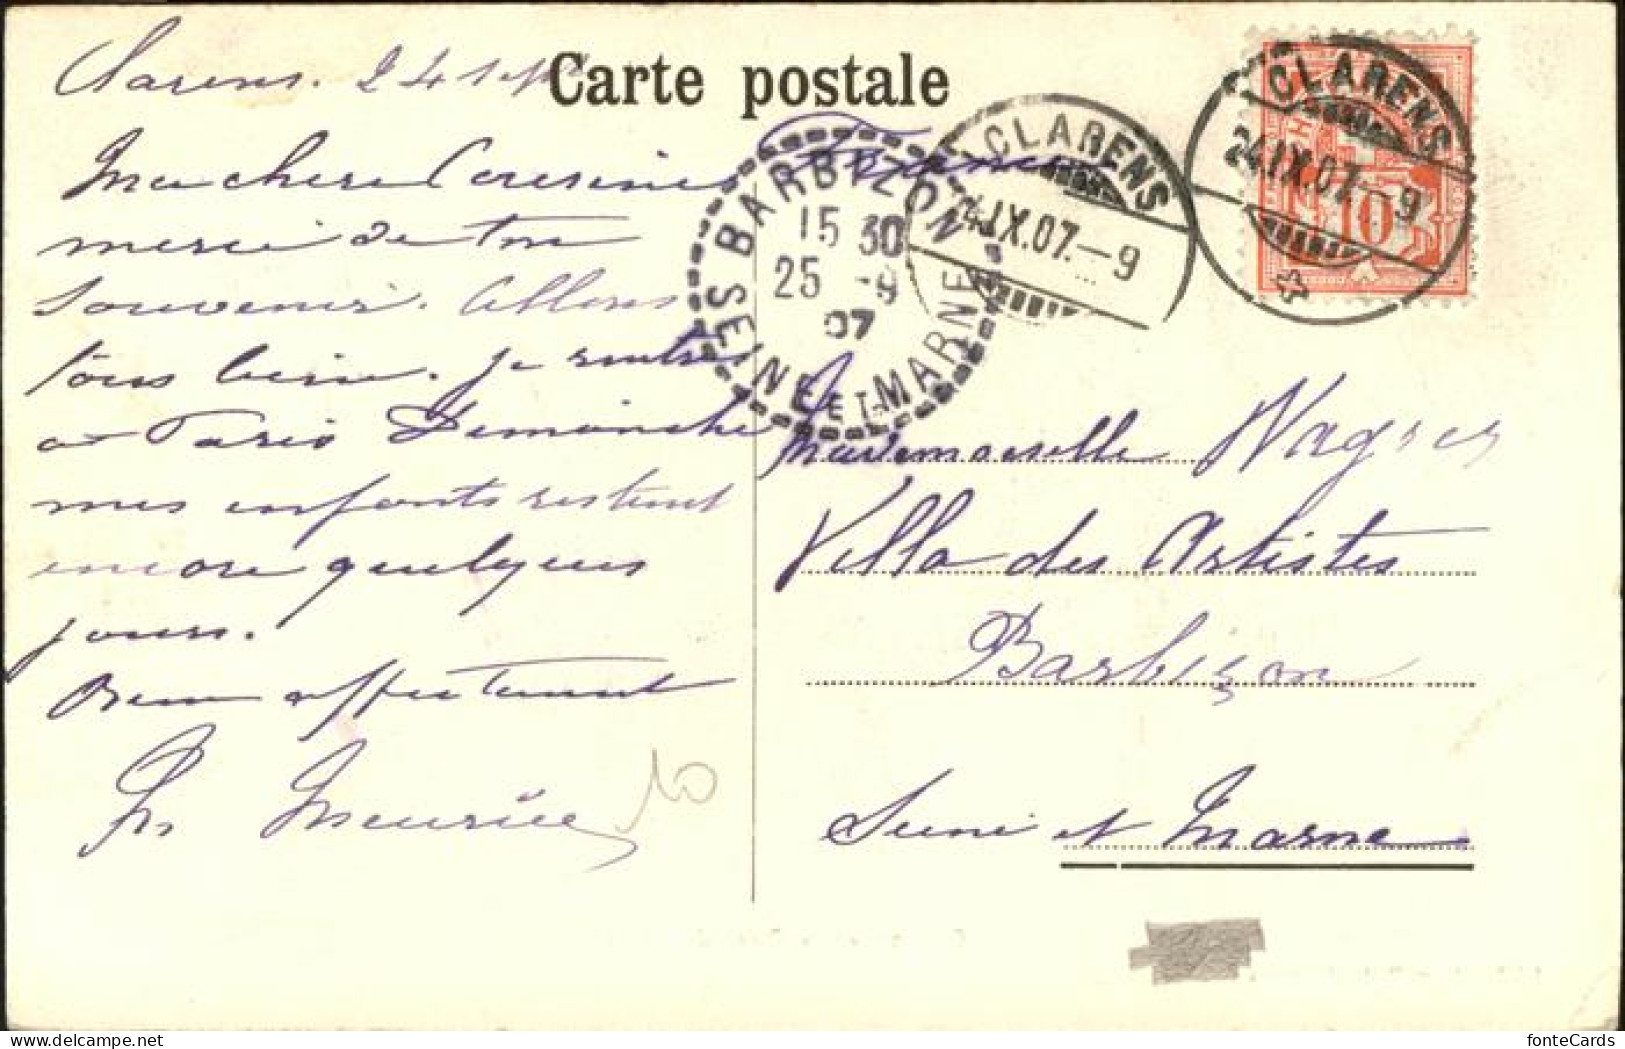 Carte postale
Clarens. 24 sept
Ma chère Cousine
merci de ton
souvenir. Allons
tous bien. Je rentre
à Paris Dimanche
mes enfants restent
encore quelques
jours.
Bien affectement
10
BARBIZON
15 30
25 -9
07
SEINE ET MARNE
CLARENS
24.IX.07.-9
CLARENS
24.IX.07.-9
10
Mademoiselle
Villa des Artistes
Barbizon
Seine et Marne
fonteCards